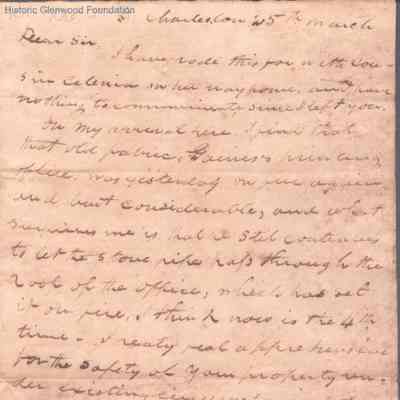 Historic Glenwood Foundation
Charleston 25th March
Dear Sir
I have rode this far with Cou-
sin Celenia on her way home, and have
nothing to communicate since I left you.
On my arrival here I find that
that old
place, was yesterday on fire again
and burnt considerable, and what
surprises me is that he still continues
to let the stove pipe pass through the
roof of the office, which has set
it on fire, I think now is the 4th
time. I realy feel apprehensive
for the safety of your property un-
der existing